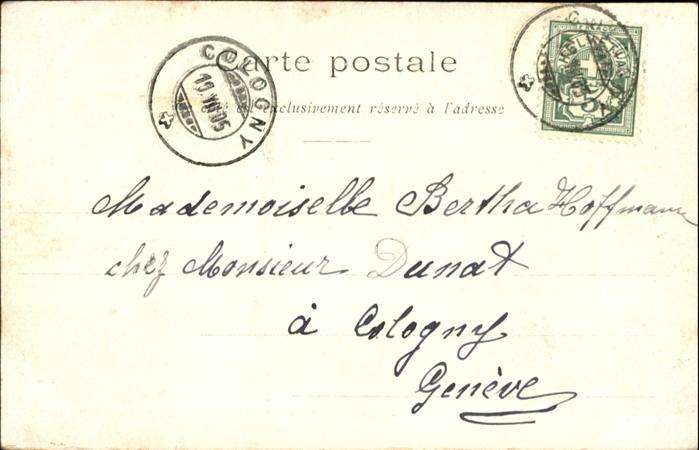 Carte postale
COLOGNY
exclusivement réservé à l'adresse
HELVETIA
5
Mademoiselle Bertha Hoffmann
chez Monsieur Dunat
à Cologny
Genève